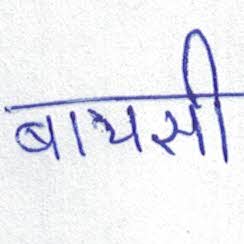 बायसी